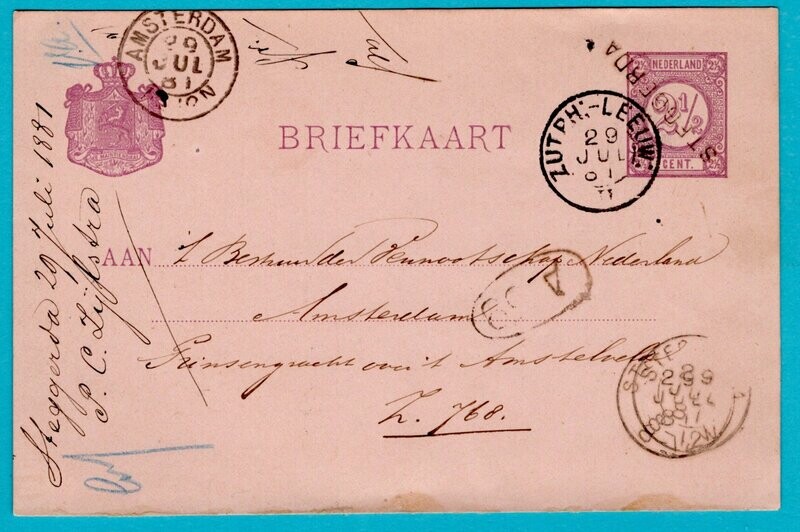 AMSTERDAM
29
JUL
81
STEGGERDA
NEDERLAND
2½ 2½
2½
CENT.
BRIEFKAART
ZUTPH:-LEEUW:
29
JUL
81
AAN 't Bestuur der Vennootschap Nederland
Amsterdam
Prinsengracht over 't Amstelveld
Z. 768.
Steggerda 29 Juli 1881
P. C. Zijlstra
A